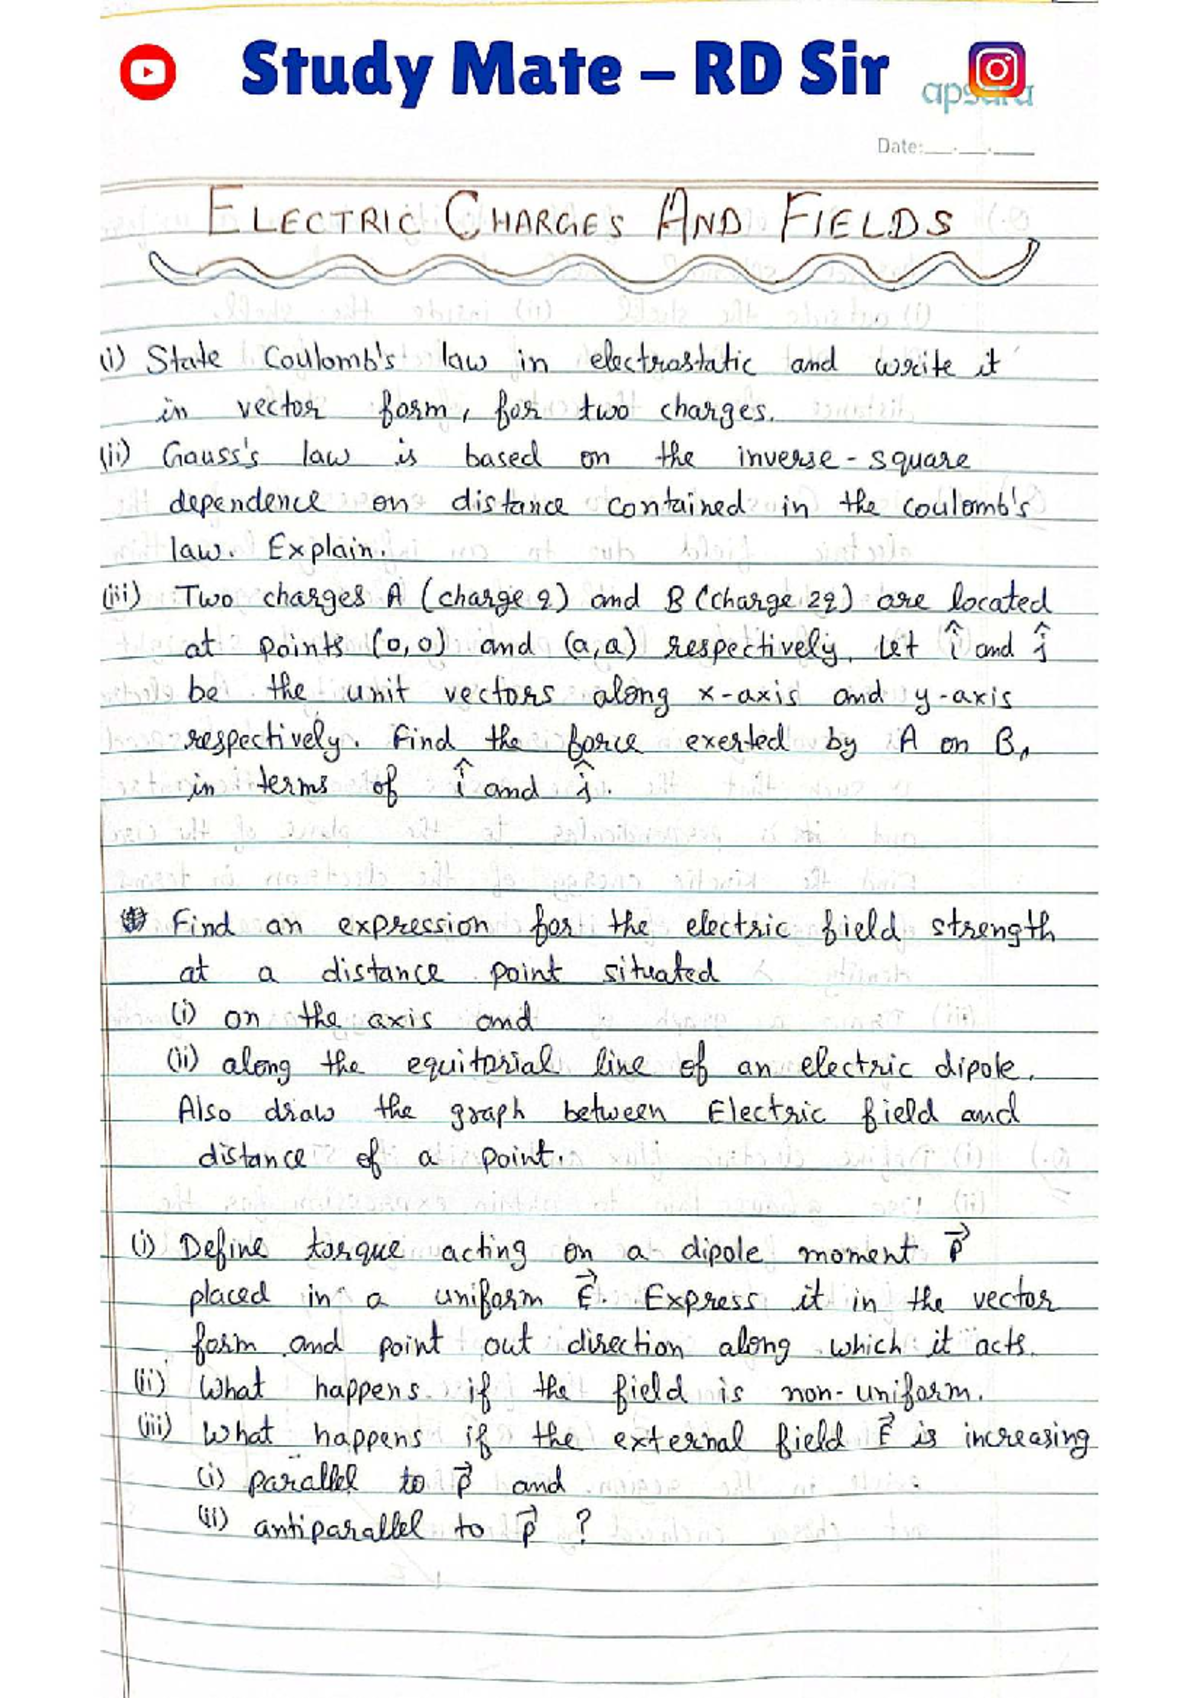 Study Mate – RD Sir
apsara
Date:__.__.__
ELECTRIC CHARGES AND FIELDS
(i) State Coulomb's law in electrostatic and write it
in vector form, for two charges.
(ii) Gauss's law is based on the inverse-square
dependence on distance contained in the coulomb's
law. Explain.
(iii) Two charges A (charge q) and B (charge 2q) are located
at points (0,0) and (a,a) respectively. Let î and ĵ
be the unit vectors along x-axis and y-axis
respectively. Find the force exerted by A on B,
in terms of î and ĵ.
Find an expression for the electric field strength
at a distance point situated
(i) on the axis and
(ii) along the equitorial line of an electric dipole.
Also draw the graph between Electric field and
distance of a point.
(i) Define torque acting on a dipole moment P⃗
placed in a uniform E⃗. Express it in the vector
form and point out direction along which it acts.
(ii) What happens if the field is non-uniform.
(iii) What happens if the external field E⃗ is increasing
(i) parallel to P⃗ and
(ii) antiparallel to P⃗ ?